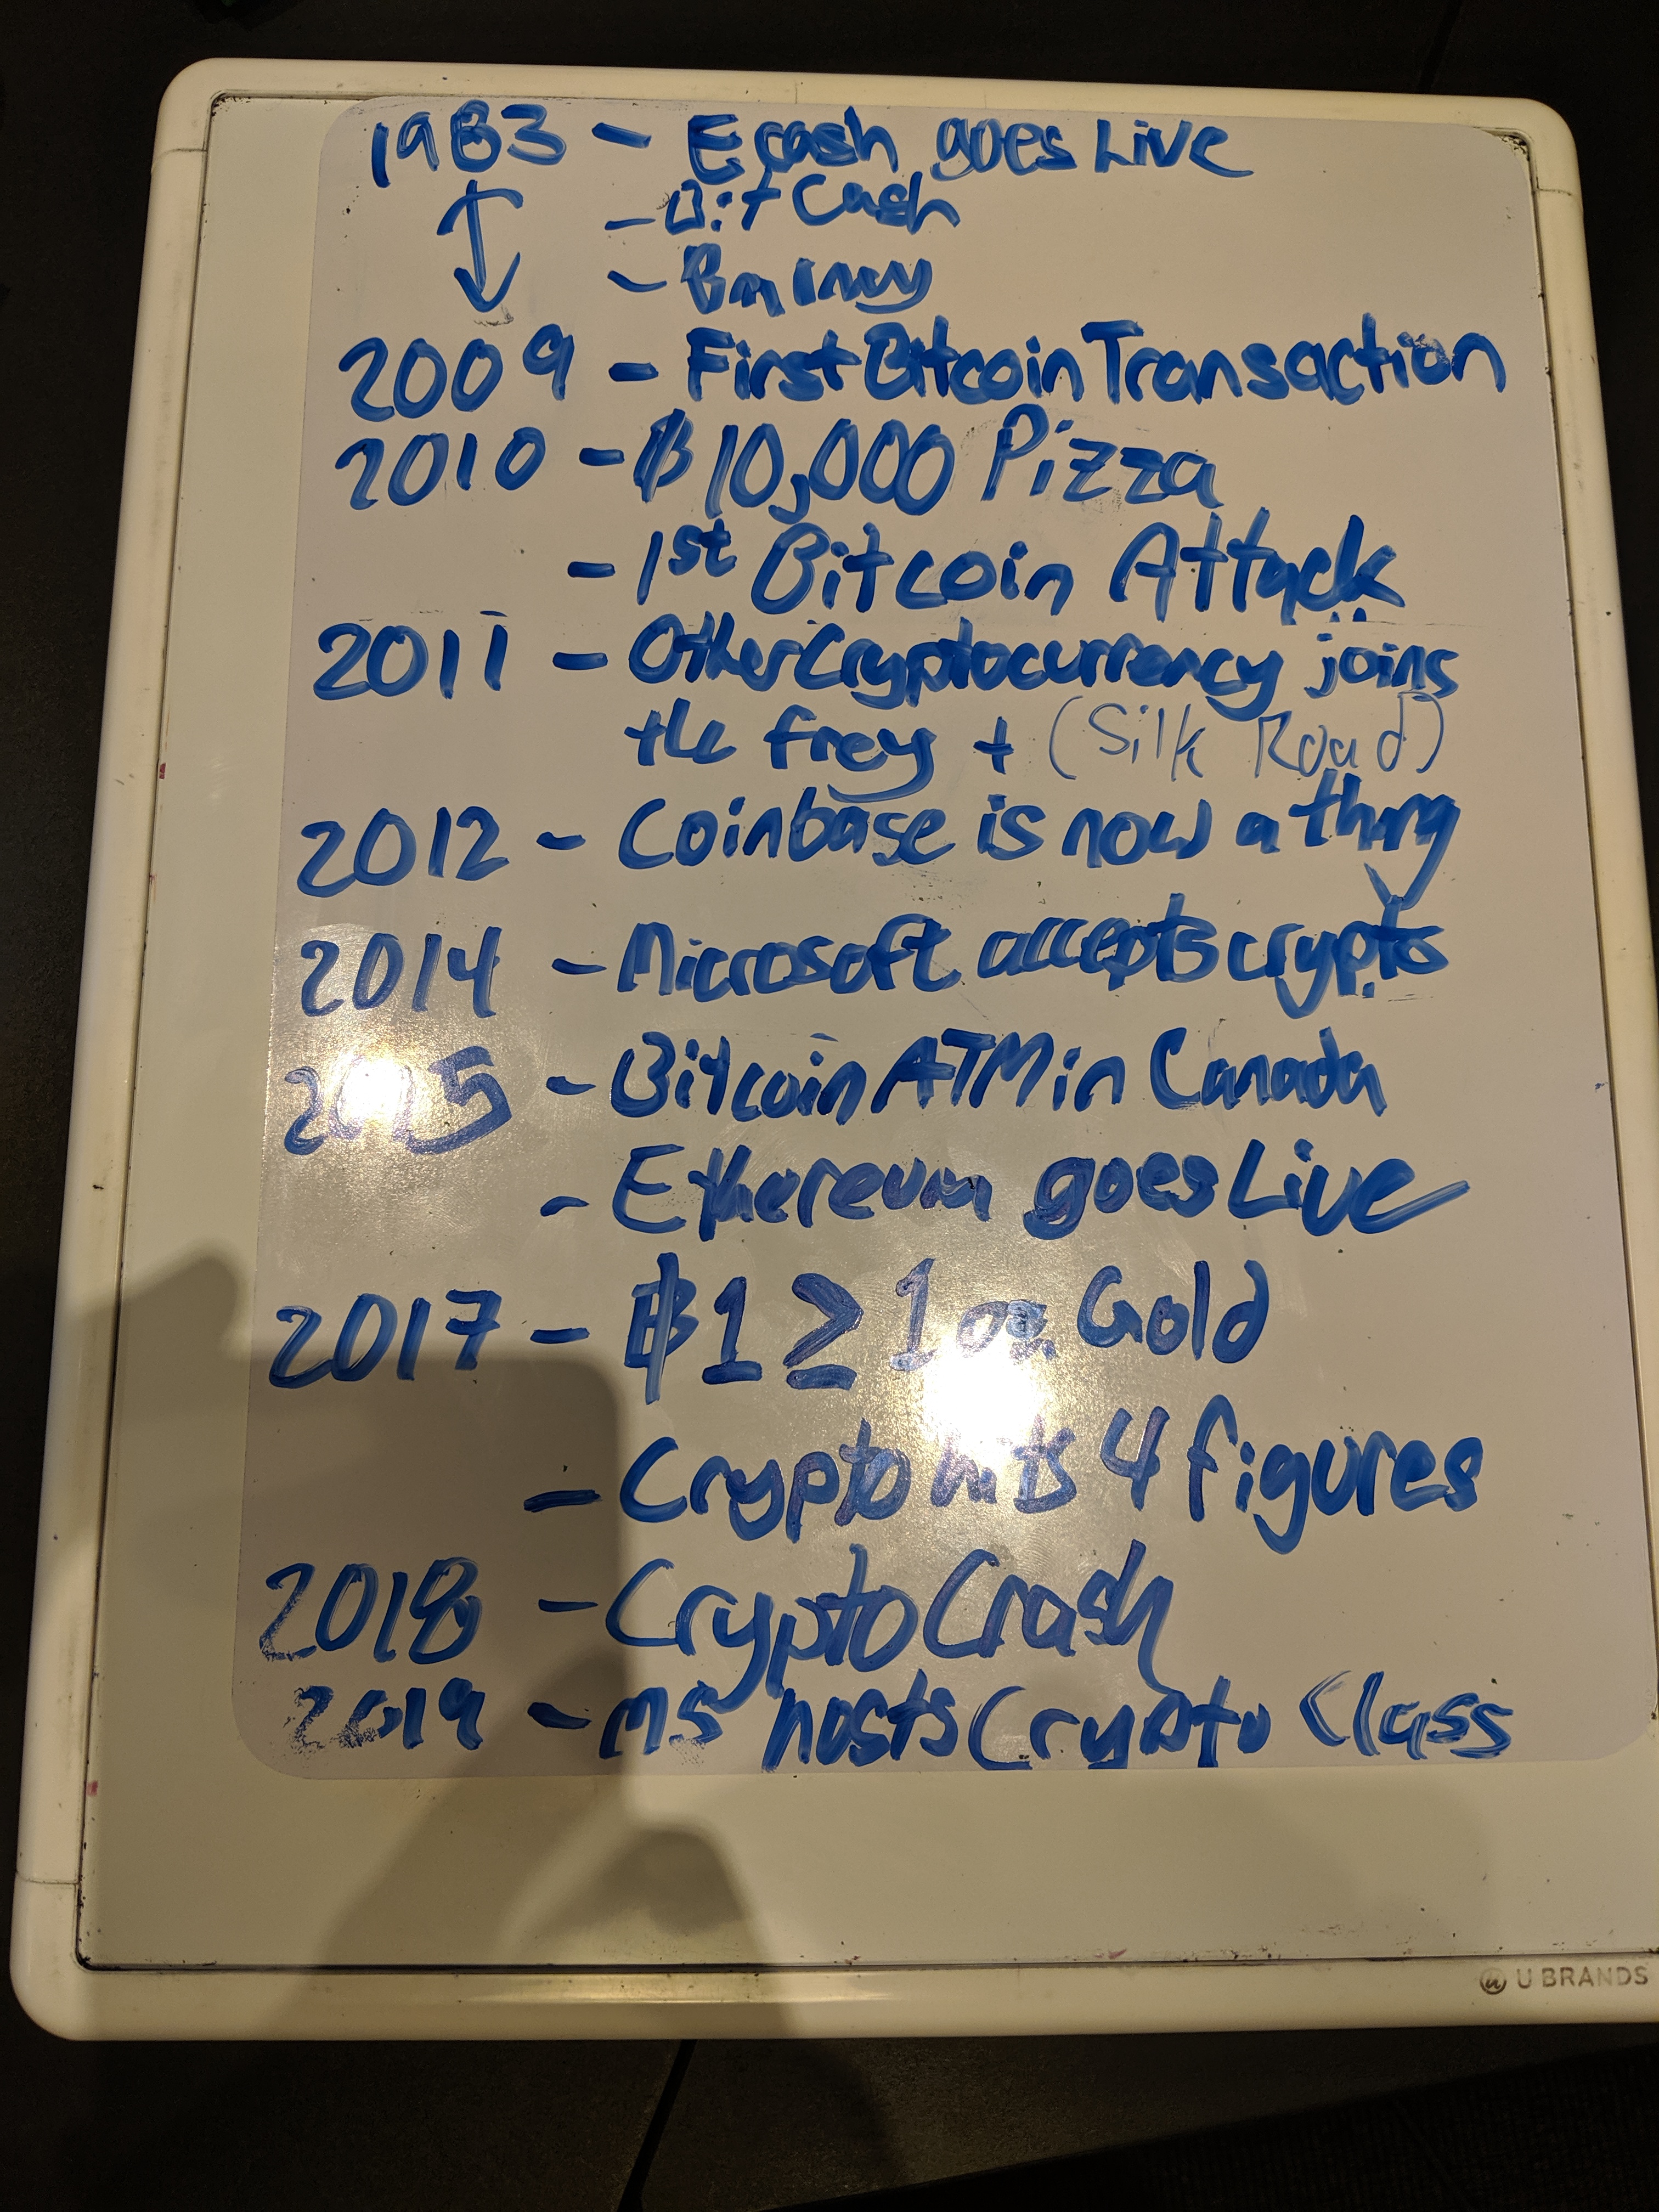 1983 - Ecash goes Live
- Bit Cash
-
2009 - First Bitcoin Transaction
2010 - ₿10,000 Pizza
- 1st Bitcoin Attack
2011 - Other Cryptocurrency joins
the frey + (Silk Road)
2012 - Coinbase is now a thing
2014 - Microsoft accepts crypto
2015 - Bitcoin ATM in Canada
- Ethereum goes Live
2017 - ₿1 ≥ 1 oz. Gold
- Crypto hits 4 figures
2018 - Crypto Crash
2019 - MS hosts Crypto Class
U BRANDS